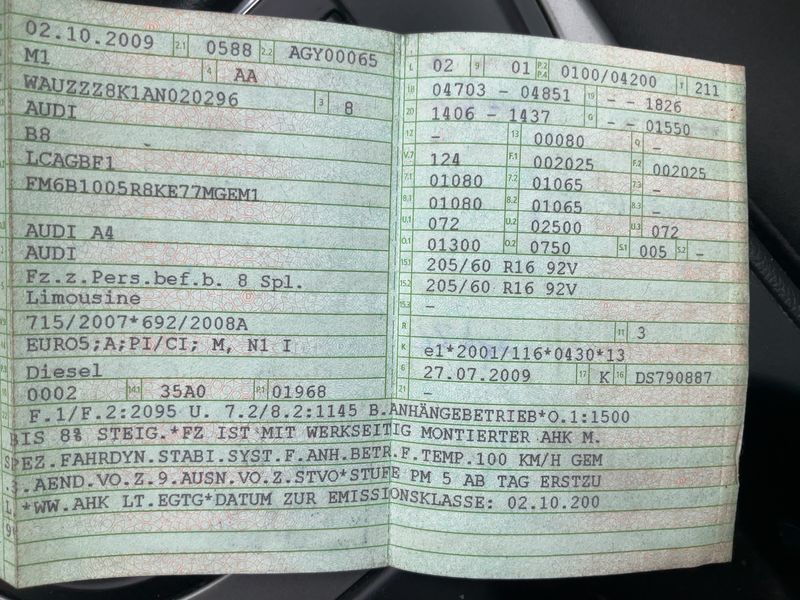 02.10.2009 2.1 0588 2.2 AGY00065
M1 4 AA
WAUZZZ8K1AN020296 3 8
AUDI
B8
LCAGBF1
FM6B1005R8KE77MGEM1
AUDI A4
AUDI
Fz.z.Pers.bef.b. 8 Spl.
Limousine
715/2007*692/2008A
EURO5;A;PI/CI; M, N1 I
Diesel
0002 14.1 35A0 P.1 01968
L 02 9 01 P.2 P.4 0100/04200 T 211
18 04703 - 04851 19 - - 1826
20 1406 - 1437 G - - 01550
12 - 13 00080 Q -
V.7 124 F.1 002025 F.2 002025
7.1 01080 7.2 01065 7.3 -
8.1 01080 8.2 01065 8.3 -
U.1 072 U.2 02500 U.3 072
O.1 01300 O.2 0750 S.1 005 S.2 -
15.1 205/60 R16 92V
15.2 205/60 R16 92V
15.3 -
R 11 3
K e1*2001/116*0430*13
6 27.07.2009 17 K 16 DS790887
21 -
F.1/F.2:2095 U. 7.2/8.2:1145 B.ANHÄNGEBETRIEB*O.1:1500
BIS 8% STEIG.*FZ IST MIT WERKSEITIG MONTIERTER AHK M.
SPEZ.FAHRDYN.STABI.SYST.F.ANH.BETR.F.TEMP.100 KM/H GEM
.AEND.VO.Z.9.AUSN.VO.Z.STVO*STUFE PM 5 AB TAG ERSTZU
L*WW.AHK LT.EGTG*DATUM ZUR EMISSIONSKLASSE: 02.10.200
9